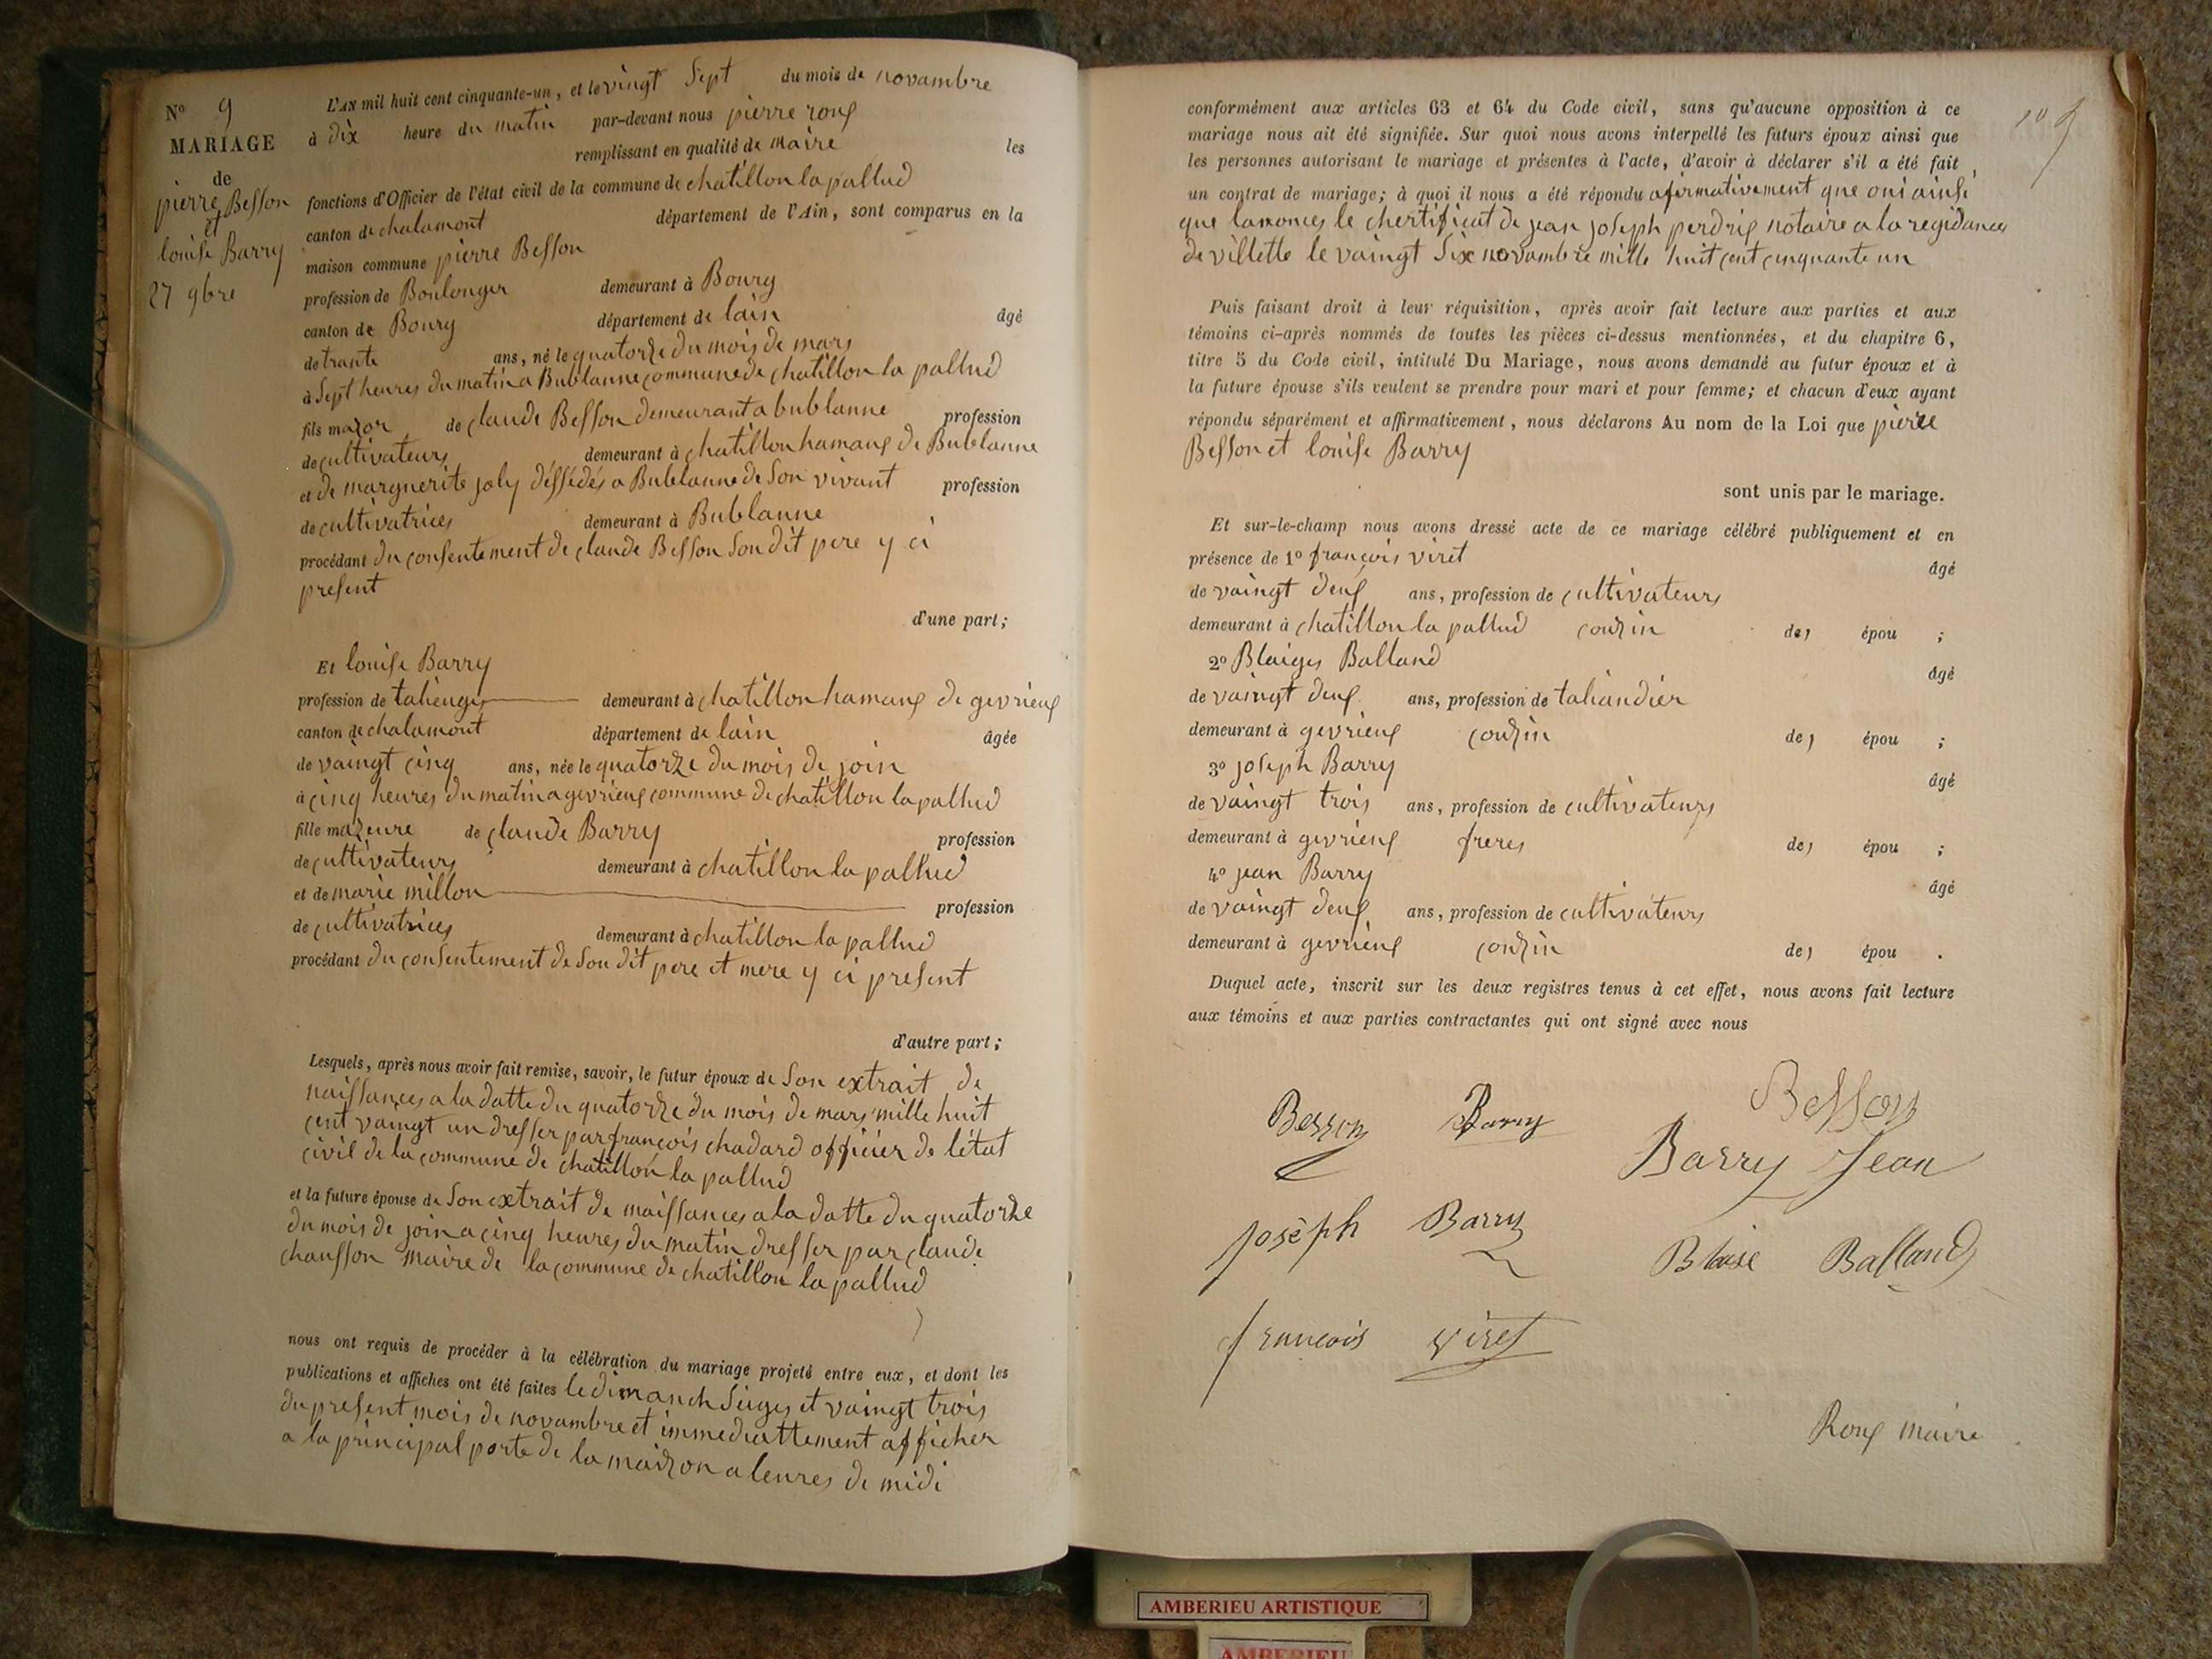 N° 9
MARIAGE
de
pierre Besson
et
louise Barry
27 9bre
L'AN mil huit cent cinquante-un, et le vingt sept du mois de novambre
à dix heure du matin par-devant nous pierre roux
remplissant en qualité de maire les
fonctions d'Officier de l'état civil de la commune de chatillon la pallud
canton de chalamont département de l'Ain, sont comparus en la
maison commune pierre Besson
profession de Boulonger demeurant à Bourg
canton de Bourg département de lain âgé
de trante ans, né le quatorze du mois de mars
à sept heures du matin a Bublanne commune de chatillon la pallud
fils mazor de claude Besson demeurant a bublanne profession
de cultivateurs demeurant à chatillon hamaux de Bublanne
et de marguerite joly déssédés a Bublanne de son vivant profession
de cultivatrices demeurant à Bublanne
procédant du consentement de claude Besson son dit pere y ci
present
d'une part;
Et louise Barry
profession de talieuges demeurant à chatillon hamaux de gevrieux
canton de chalamont département de lain âgée
de vaingt cinq ans, née le quatorze du mois de join
à cinq heures du matin a gevrieux commune de chatillon la pallud
fille mazeure de claude Barry profession
de cultivateurs demeurant à chatillon la pallud
et de marie millon profession
de cultivatrices demeurant à chatillon la pallud
procédant du consentement de son dit pere et mere y ci present
d'autre part;
Lesquels, après nous avoir fait remise, savoir, le futur époux de son extrait de
naissances a la datte du quatorze du mois de mars mille huit
cent vaingt un dresser par françois chadard officier de l'état
civil de la commune de chatillon la pallud
et la future épouse de son extrait de naissances a la datte du quatorze
du mois de join a cinq heures du matin dresser par claude
chausson maire de la commune de chatillon la pallud
nous ont requis de procéder à la célébration du mariage projeté entre eux, et dont les
publications et affiches ont été faites le dimanch seizes et vaingt trois
du present mois de novambre et immediattement afficher
a la principal porte de la maizon a leures de midi
109
conformément aux articles 63 et 64 du Code civil, sans qu'aucune opposition à ce
mariage nous ait été signifiée. Sur quoi nous avons interpellé les futurs époux ainsi que
les personnes autorisant le mariage et présentes à l'acte, d'avoir à déclarer s'il a été fait
un contrat de mariage; à quoi il nous a été répondu afirmativement que oui ainsi
que lanonces le chertificat de jean joseph perdrix notaire a la regidances
de villette le vaingt six novambre mille huit cent cinquante un
Puis faisant droit à leur réquisition, après avoir fait lecture aux parties et aux
témoins ci-après nommés de toutes les pièces ci-dessus mentionnées, et du chapitre 6,
titre 5 du Code civil, intitulé Du Mariage, nous avons demandé au futur époux et à
la future épouse s'ils veulent se prendre pour mari et pour femme; et chacun d'eux ayant
répondu séparément et affirmativement, nous déclarons Au nom de la Loi que pierre
Besson et louise Barry
sont unis par le mariage.
Et sur-le-champ nous avons dressé acte de ce mariage célébré publiquement et en
présence de 1° françois viret âgé
de vaingt deux ans, profession de cultivateurs
demeurant à chatillon la pallud couzin des épou ;
2° Blaizes Balland âgé
de vaingt deux ans, profession de taliandier
demeurant à gevrieux couzin des épou ;
3° joseph Barry âgé
de vaingt trois ans, profession de cultivateurs
demeurant à gevrieux freres des épou ;
4° jean Barry âgé
de vaingt deux ans, profession de cultivateurs
demeurant à gevrieux couzin des épou .
Duquel acte, inscrit sur les deux registres tenus à cet effet, nous avons fait lecture
aux témoins et aux parties contractantes qui ont signé avec nous
Besson Barry Besson
Barry Jean
joseph Barry
Blaise Balland
françois viret
Roux maire
AMBERIEU ARTISTIQUE
AMBERIEU